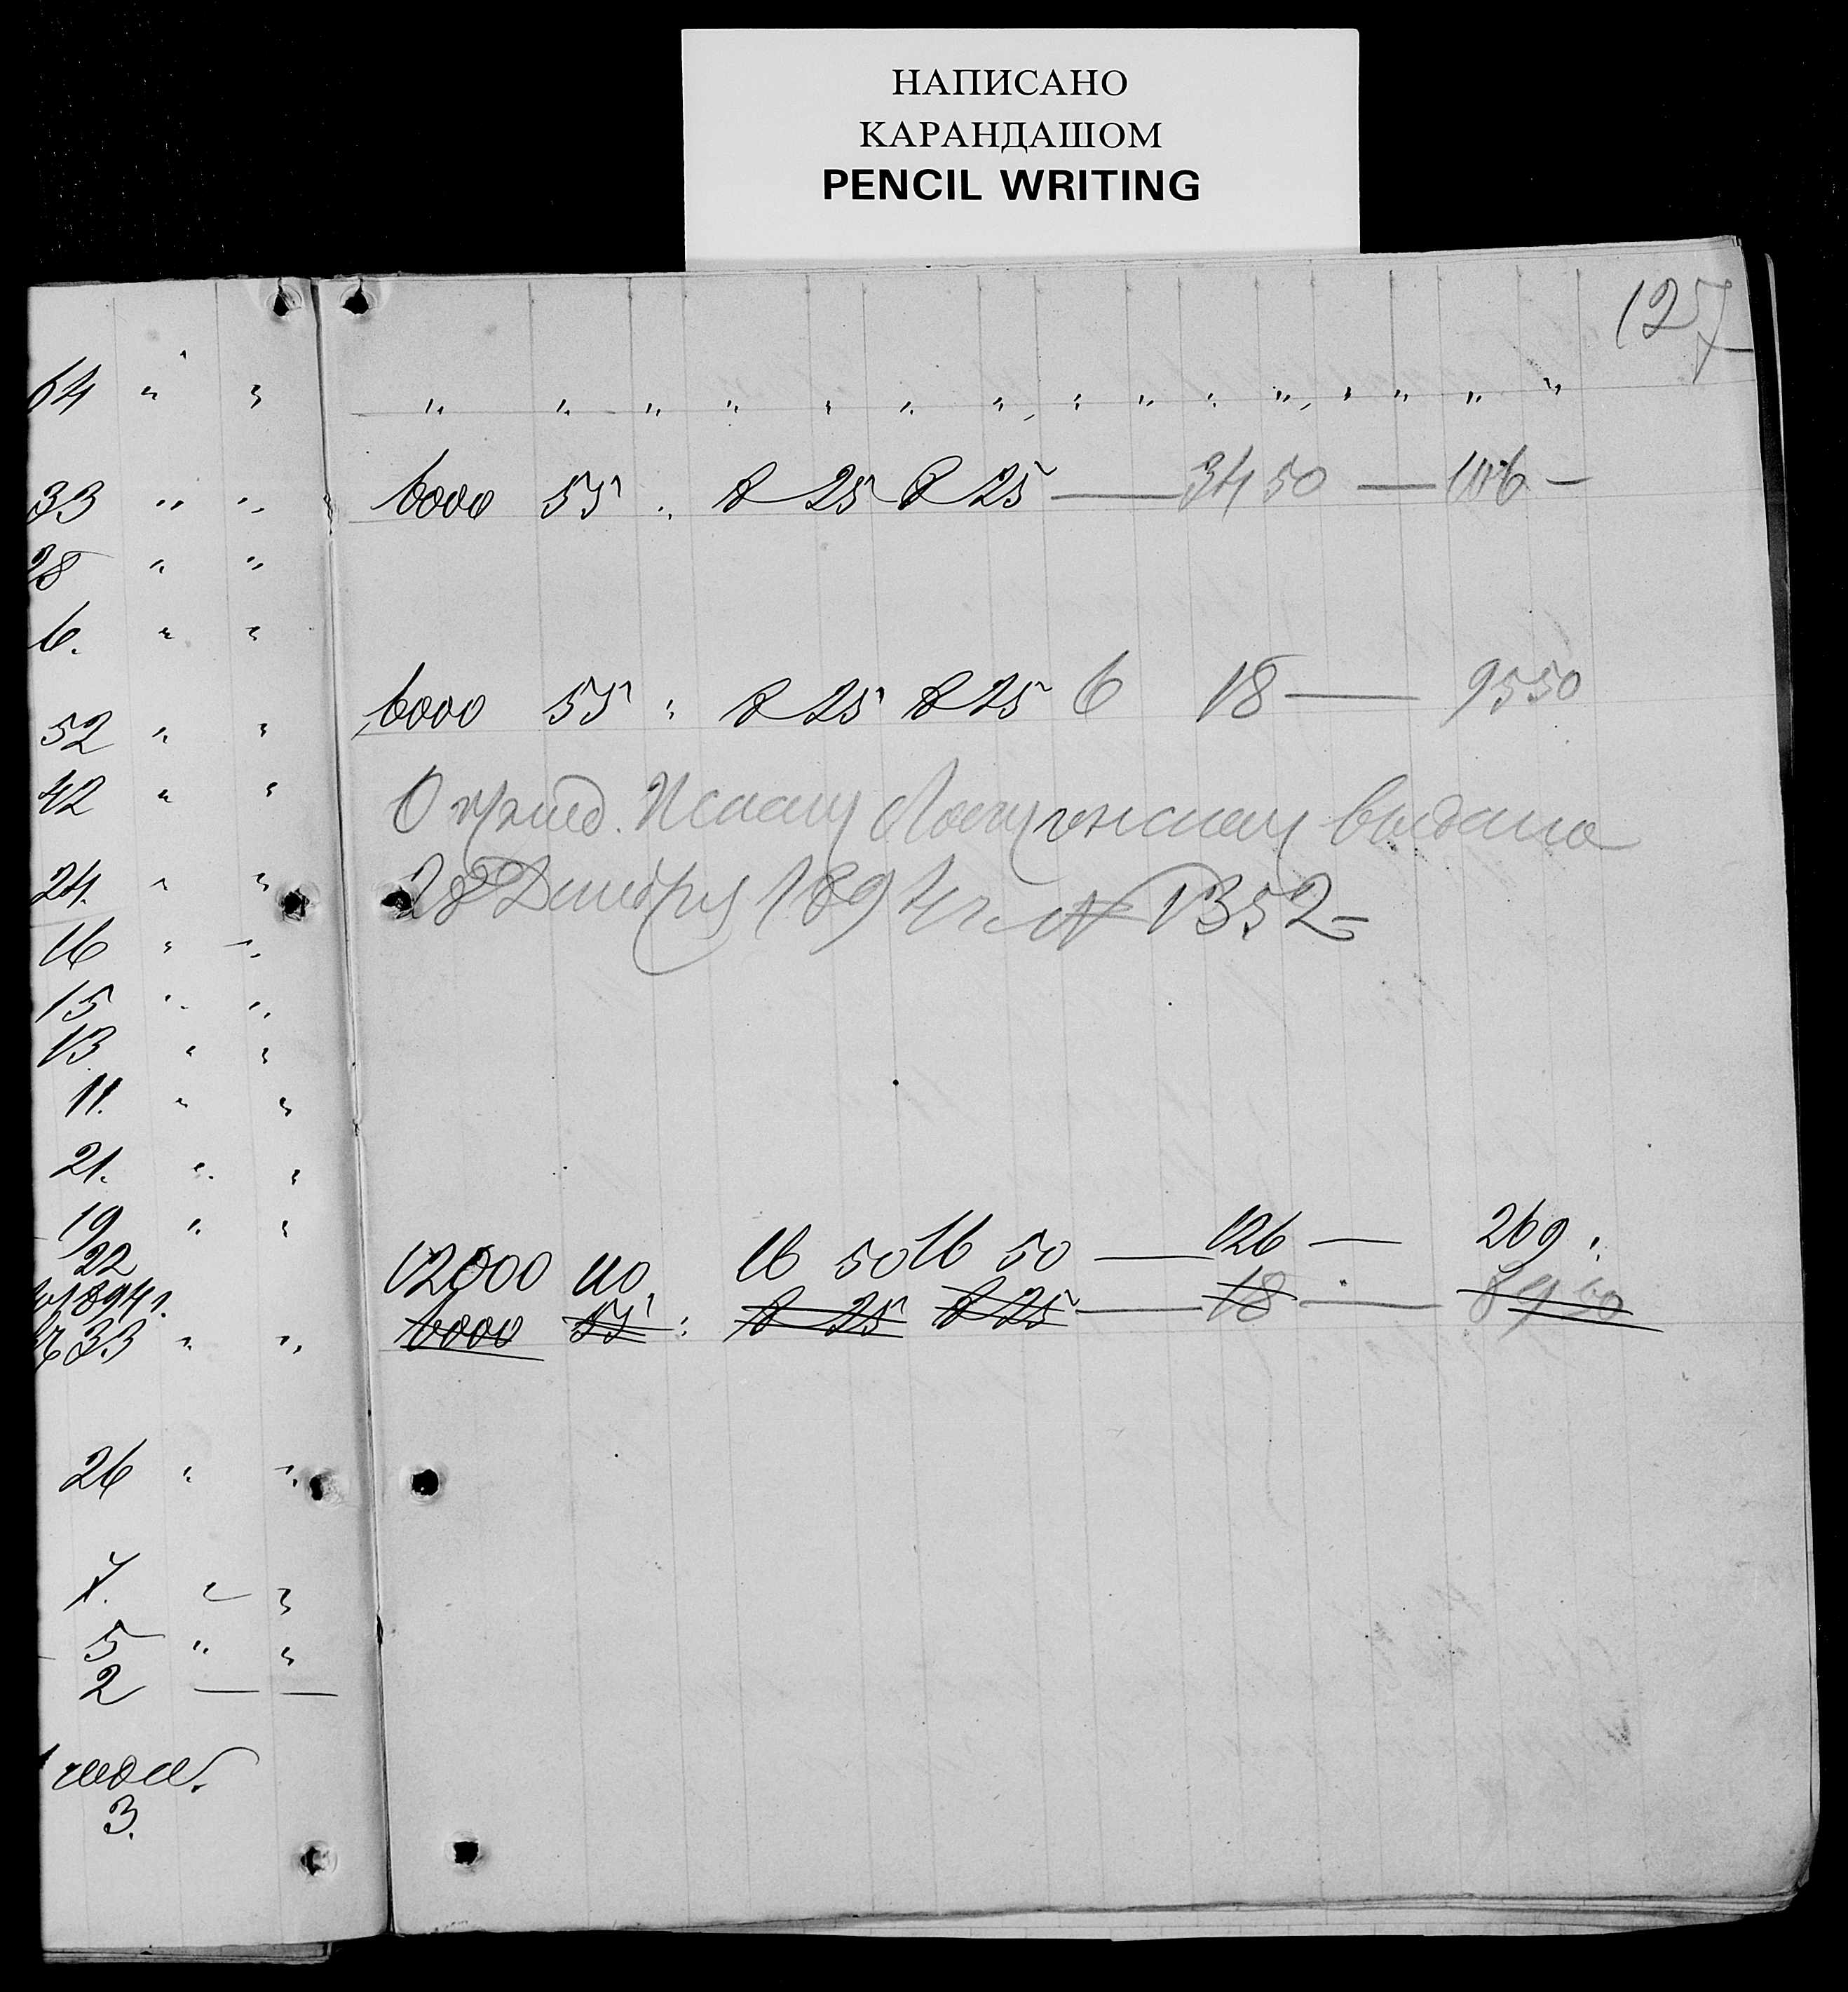 НАПИСАНО
КАРАНДАШОМ
PENCIL WRITING
127
64 " "
" " " " " " " " " " " " " " "
33 " "
6000 55 " 8 25 8 25 — 34 50 — 106 —
28 " "
6. " "
52 " "
6000 55 " 8 25 8 25 6 18 — 95 50
42 " "
О выдано
24. " "
28 Декабря 1894 г. № 1352
16 " "
15 " "
13 " "
11. " "
21. " "
19 " "
22
12000 110. 16 50 16 50 — 126 — 269 "
1894 г.
6000 55 " 8 25 8 25 — 18 — 89 50
33 " "
26 " "
7. " "
5 " "
2 — —
3.